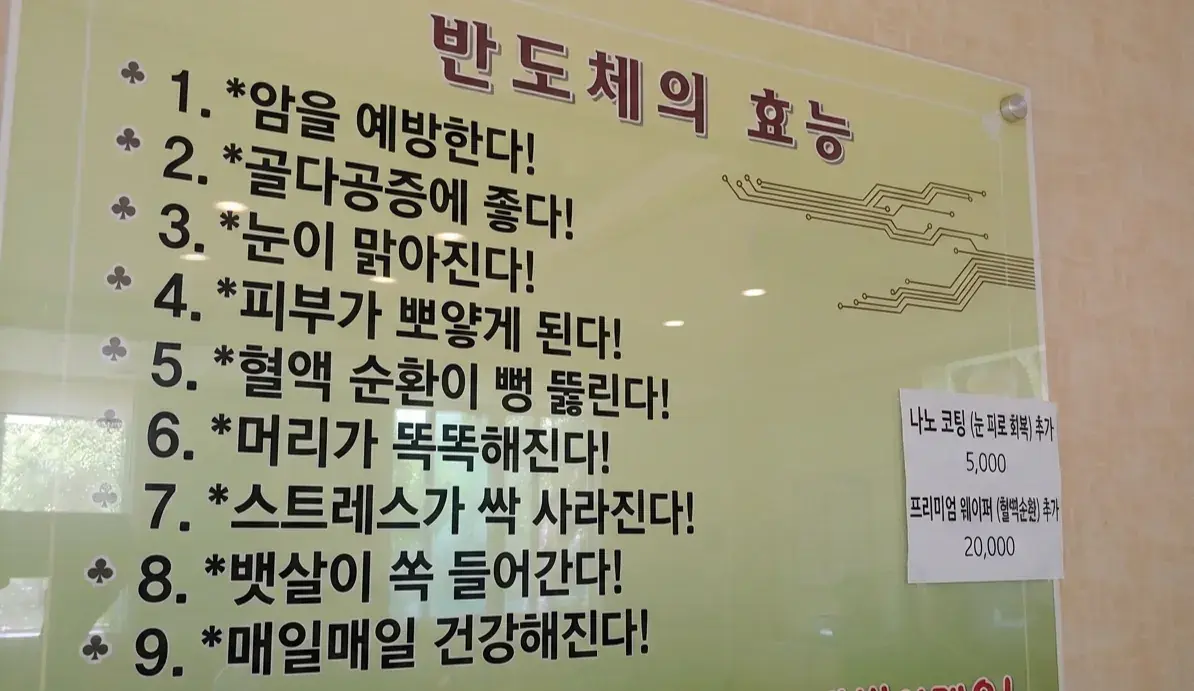 반도체의 효능
♣ 1. *암을 예방한다!
♣ 2. *골다공증에 좋다!
♣ 3. *눈이 맑아진다!
♣ 4. *피부가 뽀얗게 된다!
♣ 5. *혈액 순환이 뻥 뚫린다!
♣ 6. *머리가 똑똑해진다!
♣ 7. *스트레스가 싹 사라진다!
♣ 8. *뱃살이 쏙 들어간다!
♣ 9. *매일매일 건강해진다!
나노 코팅 (눈 피로 회복) 추가
5,000
프리미엄 웨이퍼 (혈액순환) 추가
20,000